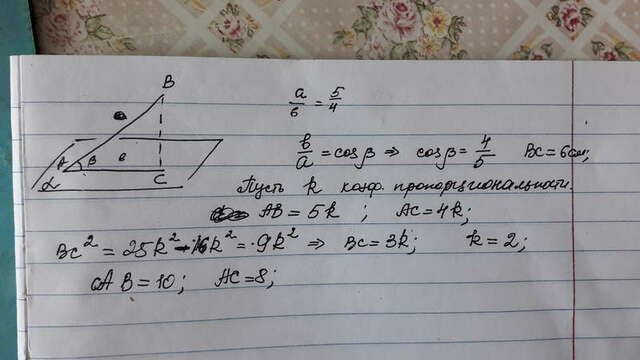 B
a/в = 5/4
в/a = cosβ ⇒ cosβ = 4/5 BC = 6см;
A β в
α C
Пусть k коэф. пропорциональности.
AB = 5k ; AC = 4k;
BC² = 25k² - 16k² = 9k² ⇒ BC = 3k; k = 2;
AB = 10; AC = 8;